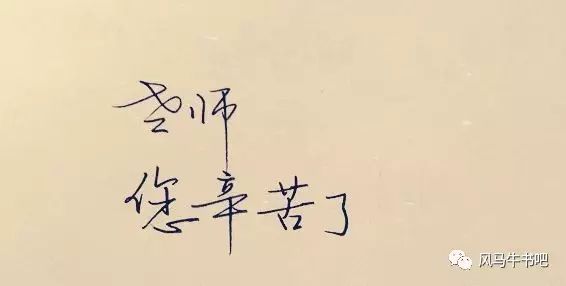 老师
您辛苦了
风马牛书吧